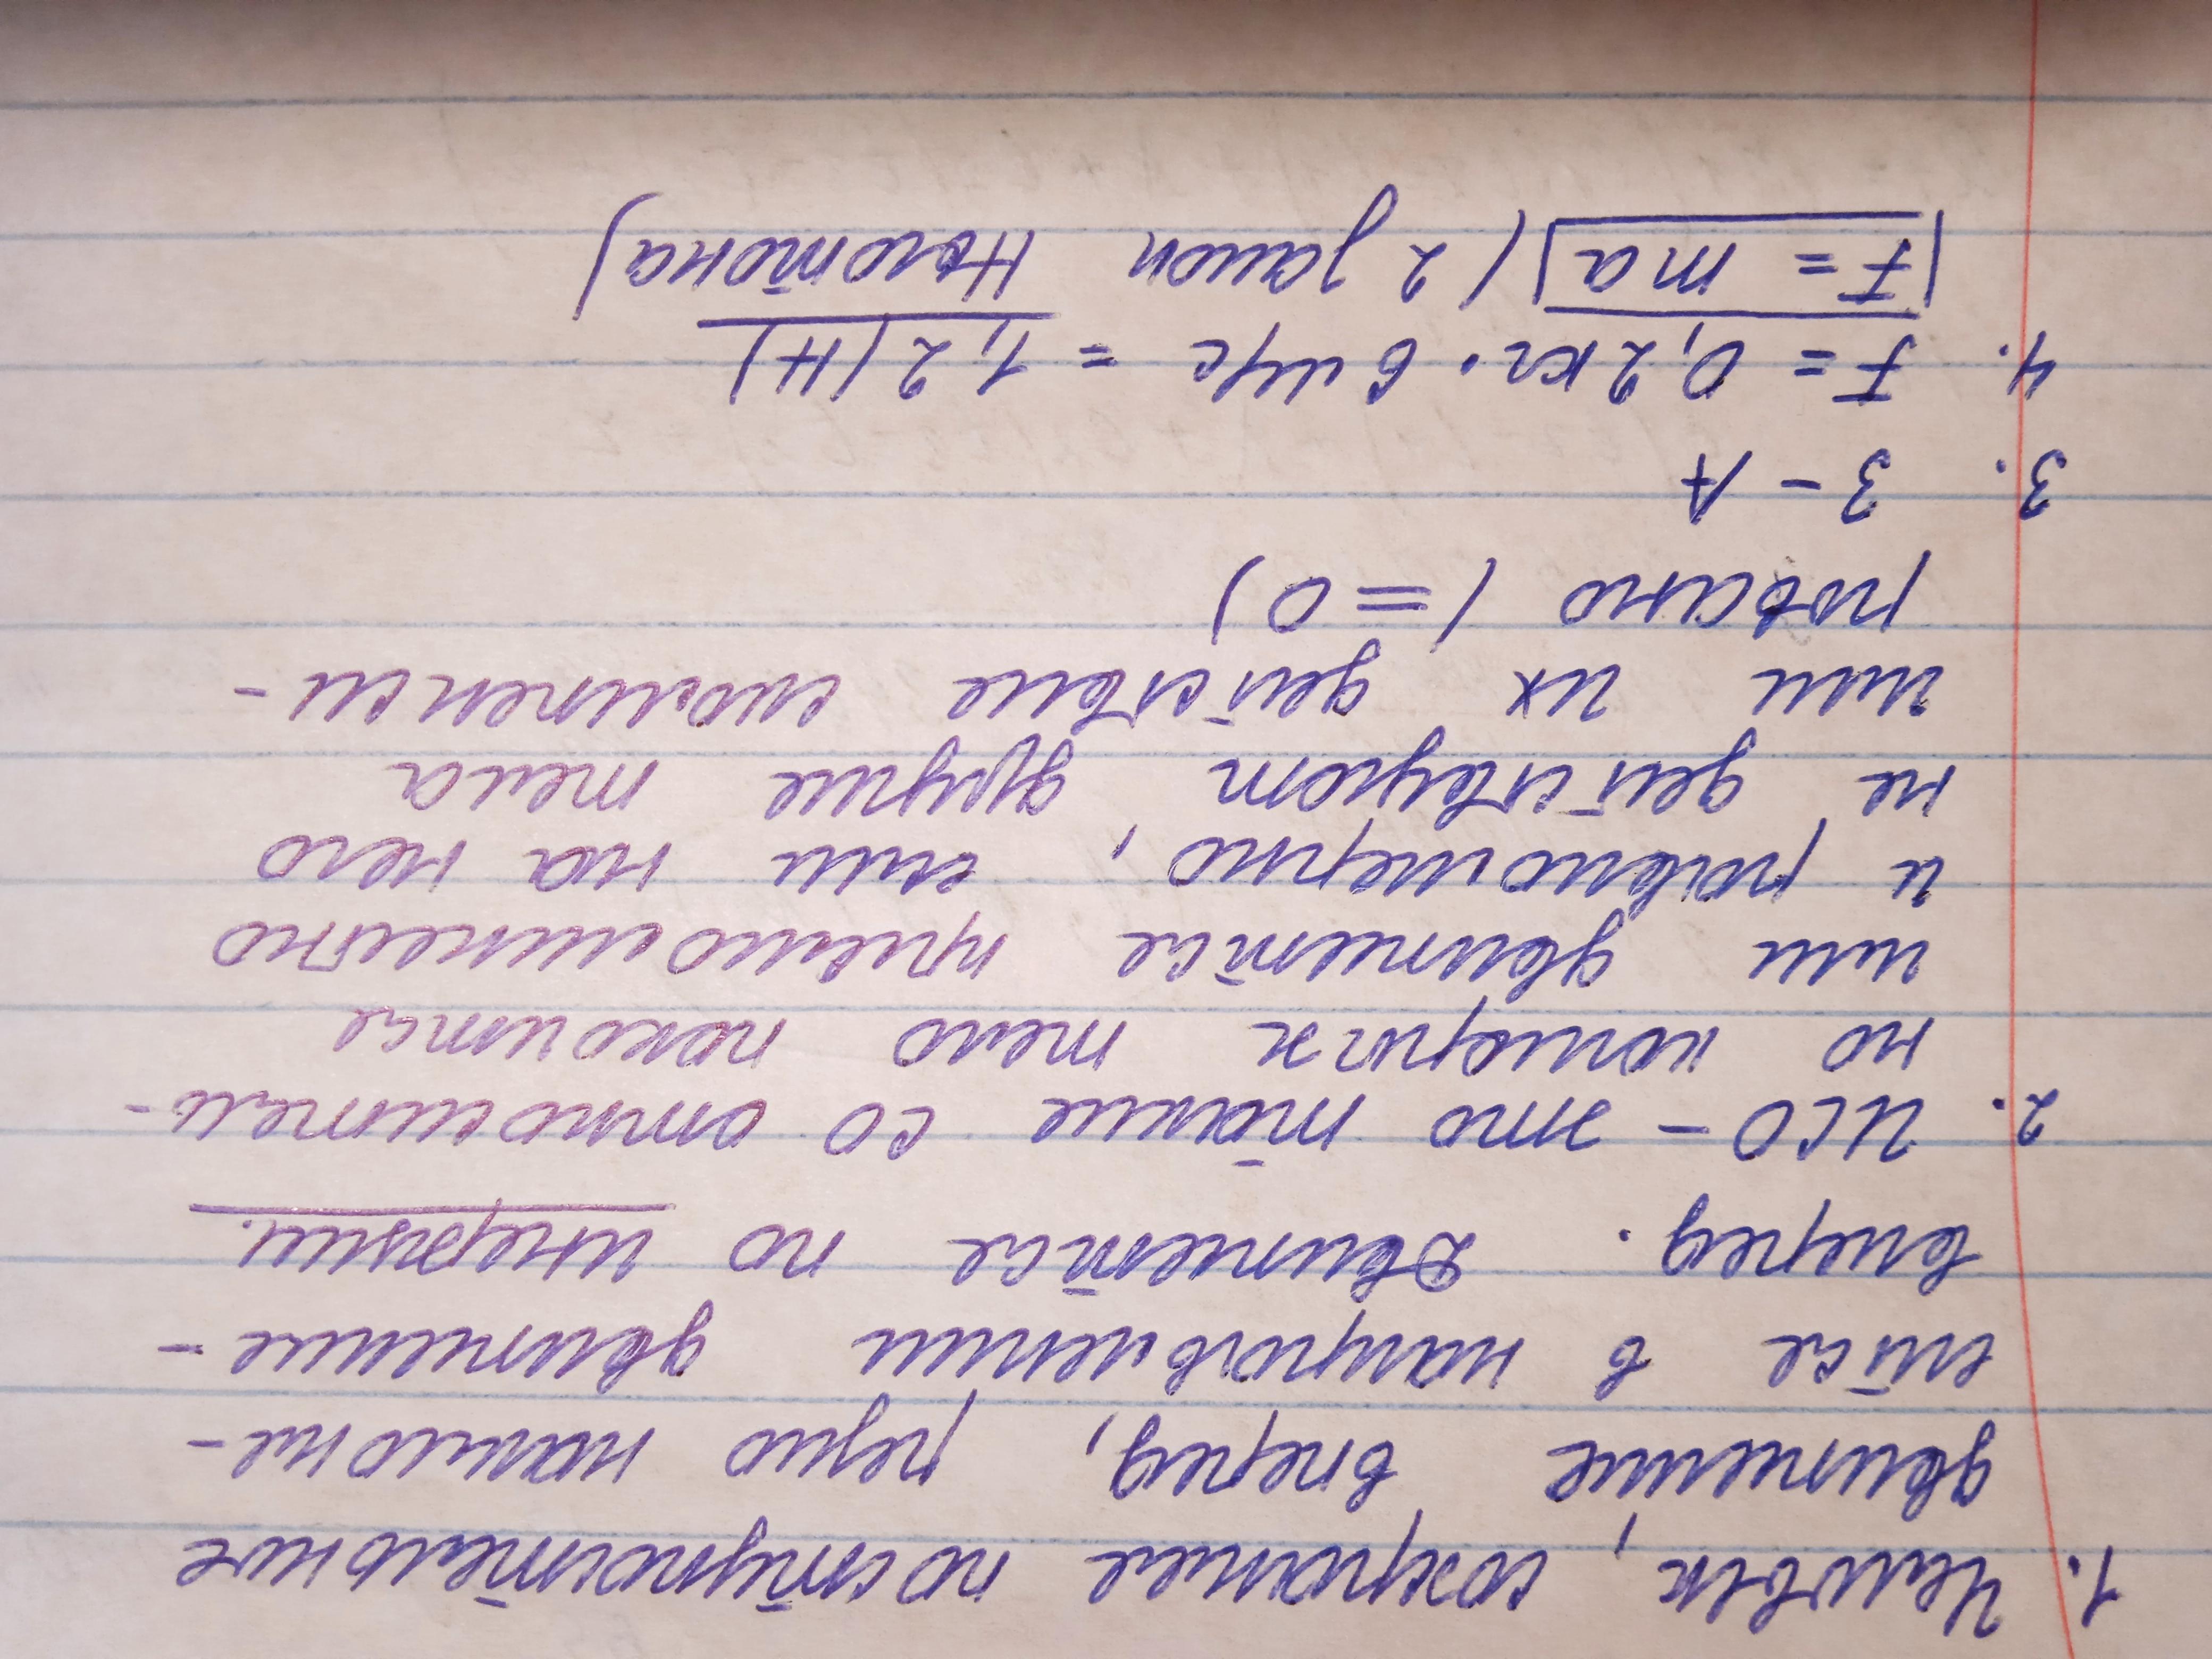 1. Человек, сохраняя поступательное
движение вперед, резко наклоня-
ется в направлении движения -
вперед. Движется по инерции.
2. ИСО - это такие СО относитель-
но которых тело покоится
или движется прямолинейно
и равномерно, если на него
не действуют другие тела
или их действие скомпенси-
ровано (=0)
3. 3 - А
4. F = 0,2 кг · 6 м/с = 1,2 (Н)
F = ma (2 закон Ньютона)